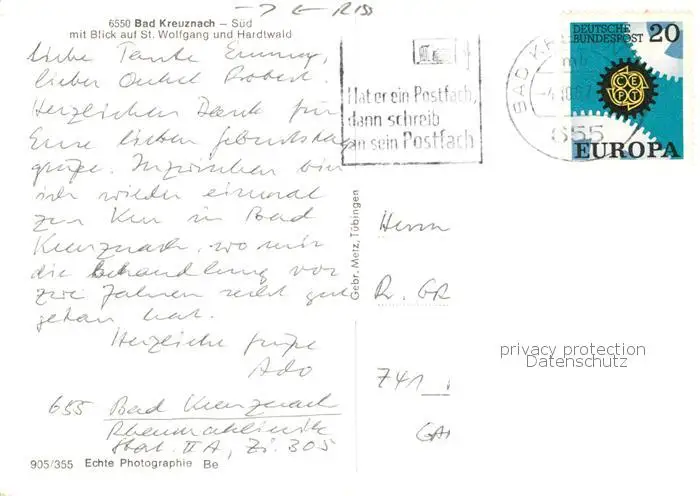 → ← RISS
6550 Bad Kreuznach – Süd
mit Blick auf St. Wolfgang und Hardtwald
Liebe Tante Emmy,
lieber Onkel Robert.
Herzlichen Dank für
Eure lieben Geburtstags
grüße. Inzwischen bin
ich wieder einmal
zur Kur in Bad
Kreuznach, wo mir
die Behandlung vor
zwei Jahren recht gut
getan hat.
Herzliche Grüße
Ado
655 Bad Kreuznach
Rheumaklinik
Stat. II A, Zi. 305
905/355 Echte Photographie Be
Gebr. Metz, Tübingen
Hat er ein Postfach,
dann schreib
an sein Postfach
BAD KR
655
DEUTSCHE
BUNDESPOST 20
CEPT
EUROPA
Herrn
R. GR
741
GA
privacy protection
Datenschutz